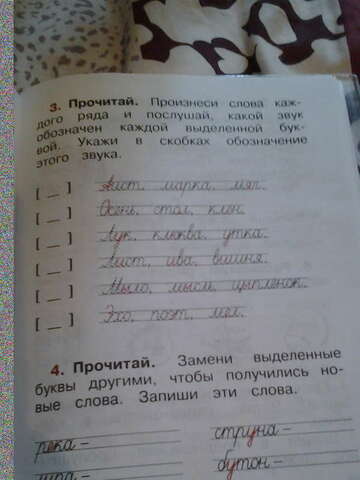 3. Прочитай. Произнеси слова каж-
дого ряда и послушай, какой звук
обозначен каждой выделенной бук-
вой. Укажи в скобках обозначение
этого звука.
[ _ ] Аист, марка, мяч.
[ _ ] Осень, стол, клён.
[ _ ] Лук, клюква, утка.
[ _ ] Лист, ива, вишня.
[ _ ] Мыло, мысль, цыплёнок.
[ _ ] Эхо, поэт, мел.
4. Прочитай. Замени выделенные
буквы другими, чтобы получились но-
вые слова. Запиши эти слова.
река – струна –
бутон –